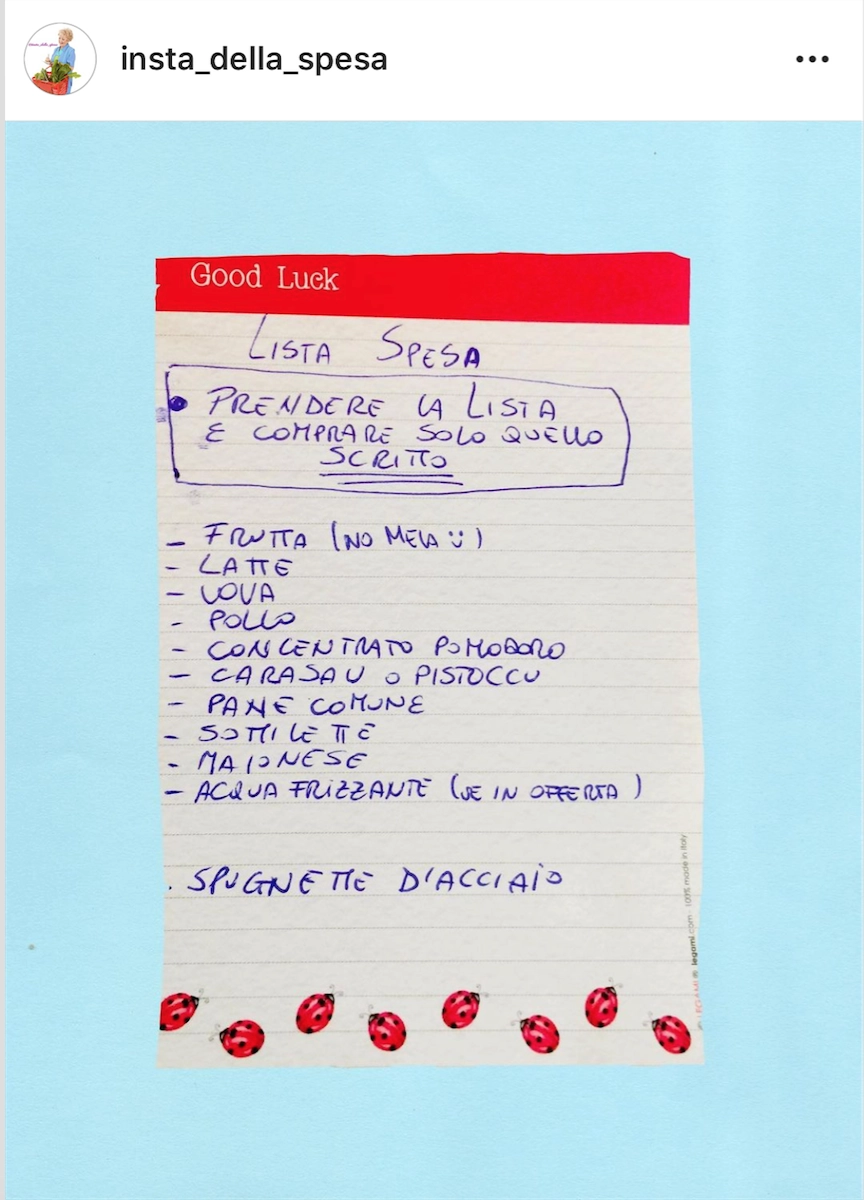 insta_della_spesa
Good Luck
LISTA SPESA
• PRENDERE LA LISTA
E COMPRARE SOLO QUELLO
SCRITTO
- FRUTTA (NO MELA Ü)
- LATTE
- UOVA
- POLLO
- CONCENTRATO POMODORO
- CARASAU O PISTOCCU
- PANE COMUNE
- SOTTILETTE
- MAIONESE
- ACQUA FRIZZANTE (SE IN OFFERTA)
. SPUGNETTE D'ACCIAIO
LEGAMI® legami.com - 100% made in Italy